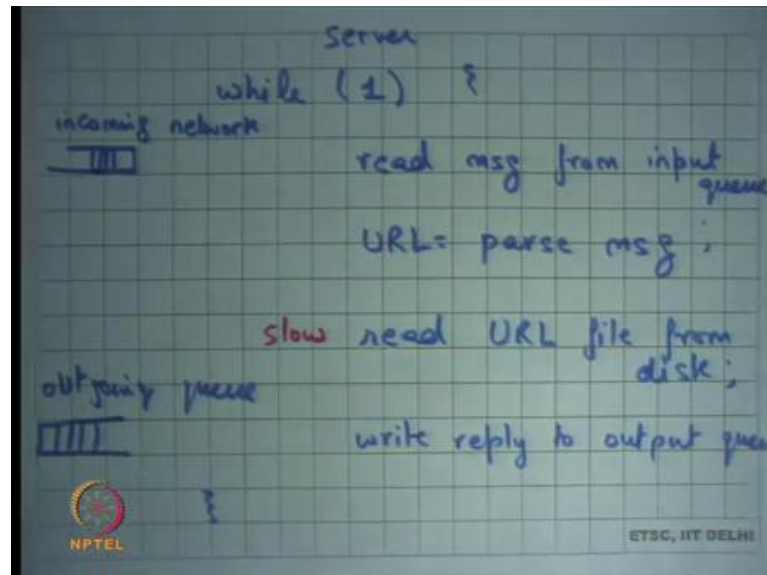 server
while (1) {
incoming network
read msg from input
queue
URL= parse msg ;
slow read URL file from
disk;
outgoing queue
write reply to output que
}
NPTEL
ETSC, IIT DELHI